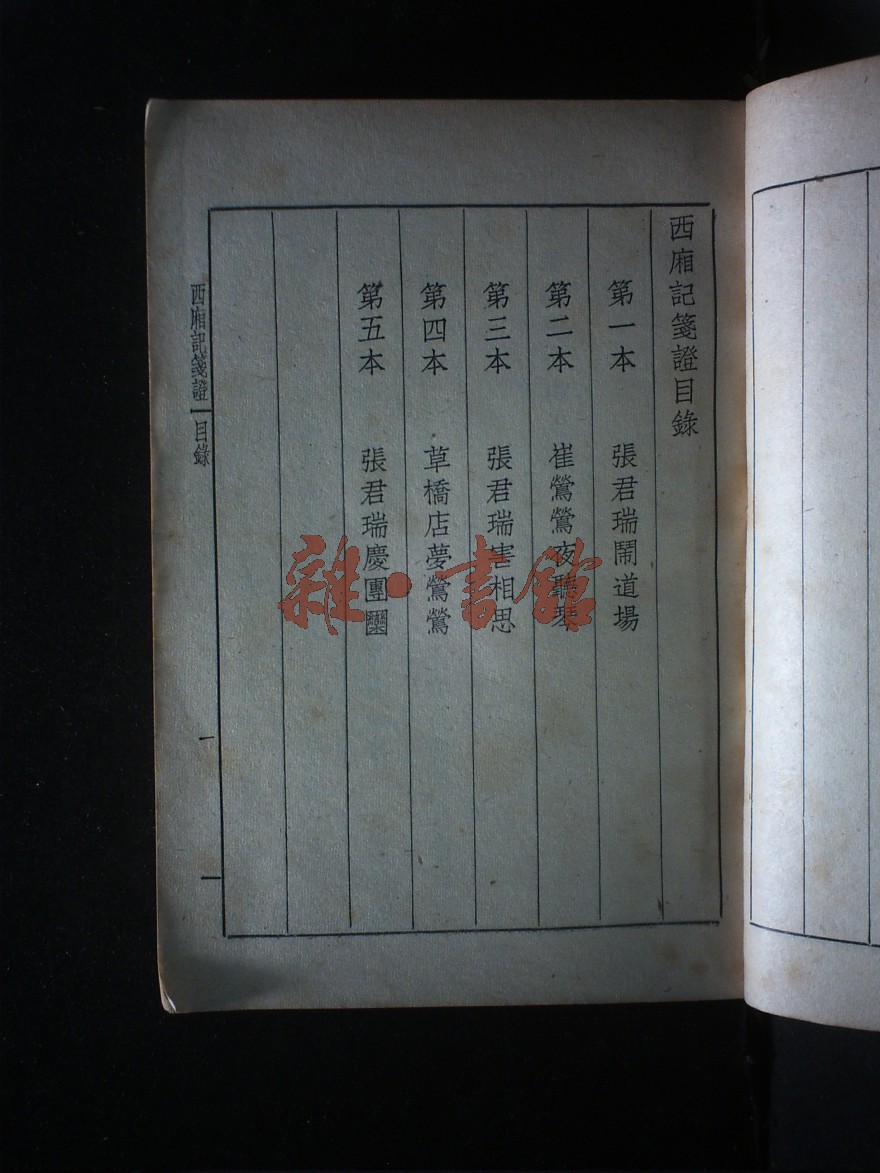 西廂記箋證目錄
第一本 張君瑞鬧道場
第二本 崔鶯鶯夜聽琴
第三本 張君瑞害相思
第四本 草橋店夢鶯鶯
第五本 張君瑞慶團圞
西廂記箋證 目錄
一
雜·書館